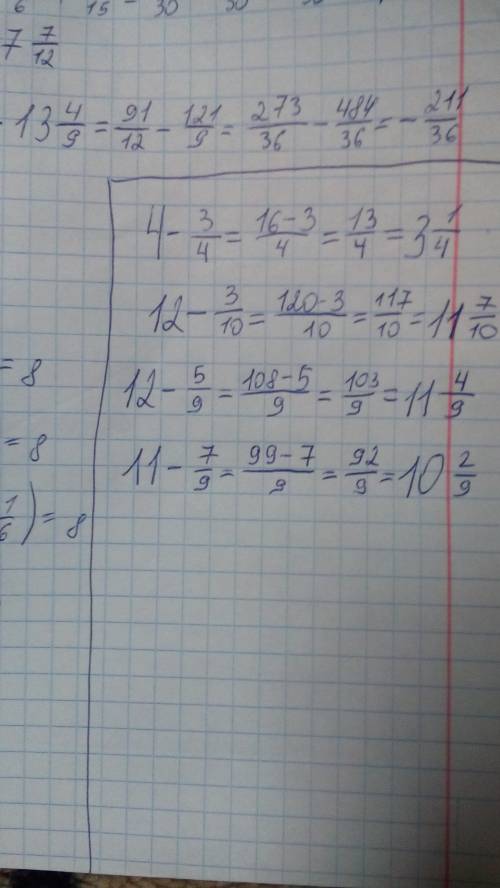 7 7/12
13 4/9 = 91/12 - 121/9 = 273/36 - 484/36 = - 211/36
4 - 3/4 = (16-3)/4 = 13/4 = 3 1/4
12 - 3/10 = (120-3)/10 = 117/10 = 11 7/10
= 8
12 - 5/9 = (108-5)/9 = 103/9 = 11 4/9
= 8
11 - 7/9 = (99-7)/9 = 92/9 = 10 2/9
1/6) = 8